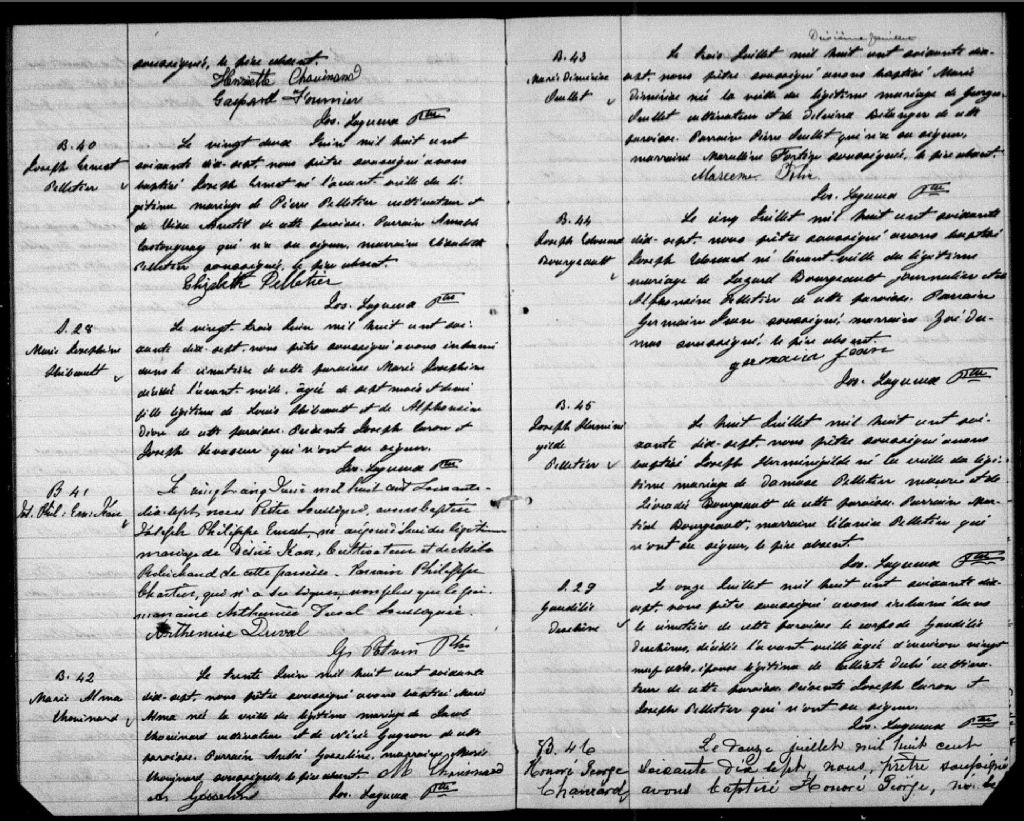 soussigné, le père absent.
Henriette Chouinard
Gaspard Fournier
Jos. Lagueux Ptre
B. 40
Joseph Ernest
Pelletier
Le vingt deux Juin mil huit cent
soixante dix-sept, nous prêtre soussigné avons
baptisé Joseph Ernest né l'avant veille du lé-
gitime mariage de Pierre Pelletier cultivateur et
de cette paroisse. Parrain
Castonguay qui n'a su signer, marraine Elizabeth
Pelletier soussignée, le père absent.
Elizabeth Pelletier
Jos. Lagueux Ptre
S. 28
Marie Josephine
Thibault
Le vingt trois Juin mil huit cent soi-
xante dix-sept, nous prêtre soussigné avons inhumé
dans le cimetière de cette paroisse Marie Josephine
décédée l'avant-veille, âgée de sept mois et demi
fille légitime de Louis Thibault et de Alphonsine
de cette paroisse. Présents Joseph Caron et
Joseph Levasseur qui n'ont su signer.
Jos. Lagueux Ptre
B 41
Jos. Phil. Ern. Jean
Le vingt-cinq Juin mil huit cent soixante-
dix-sept, nous Prêtre Soussigné, avons baptisé
Joseph Philippe Ernest, né aujourd'hui du légitime
mariage de Désiré Jean, Cultivateur et de
Robichaud de cette paroisse. Parrain Philippe
Chartier, qui n'a su signer, non plus que le père
marraine Arthémise Duval soussignée.
Arthemise Duval
Potvin Ptre
B. 42
Marie Alma
Chouinard
Le trente Juin mil huit cent soixante
dix-sept, nous prêtre soussigné avons baptisé Marie
Alma née la veille du légitime mariage de Jacob
Chouinard cultivateur et de Gagnon de cette
paroisse. Parrain André Gosselin, marraine Marie
Chouinard, soussignés, le père absent. M Chouinard
Gosselin Jos. Lagueux Ptre
B. 43
Marie Dimerise
Ouellet
Le trois Juillet mil huit cent soixante dix-
sept, nous prêtre soussigné avons baptisé Marie
Dimerise né la veille du légitime mariage de Georges
Ouellet cultivateur et de Delvina Bélanger de cette
paroisse. Parrain Pierre Ouellet qui n'a su signer,
marraine Marcelline Fortier soussignée, le père absent.
Jos. Lagueux Ptre
B. 44
Joseph Edouard
Bourgeault
Le cinq Juillet mil huit cent soixante
dix-sept, nous prêtre soussigné avons baptisé
Joseph Edouard né l'avant-veille du légitime
mariage de Lazard Bourgeault journalier et de
Alphonsine Pelletier de cette paroisse. Parrain
Germain Jean soussigné, marraine Zoé Du-
mas soussignée, le père absent.
germain jean
Jos. Lagueux Ptre
B. 45
Joseph Herméné
gilde
Pelletier
Le huit Juillet mil huit cent soi-
xante dix-sept, nous prêtre soussigné avons
baptisé Joseph Herménégilde né la veille du légi-
time mariage de Damase Pelletier et de
Bourgeault de cette paroisse. Parrain Mar-
tial Bourgeault, marraine Pelletier qui
n'ont su signer, le père absent.
Jos. Lagueux Ptre
S. 29
Le onze Juillet mil huit cent soixante dix-
sept, nous prêtre soussigné avons inhumé dans
le cimetière de cette paroisse le corps de
décédée l'avant veille âgée d'environ vingt
neuf ans, épouse légitime de Dubé cultiva-
teur de cette paroisse. Présents Joseph Caron et
Joseph Pelletier qui n'ont su signer.
Jos. Lagueux Ptre
B. 46
Honoré George
Chouinard
Le douze juillet mil huit cent
soixante dix sept, nous, prêtre soussigné
avons baptisé Honoré George, né le